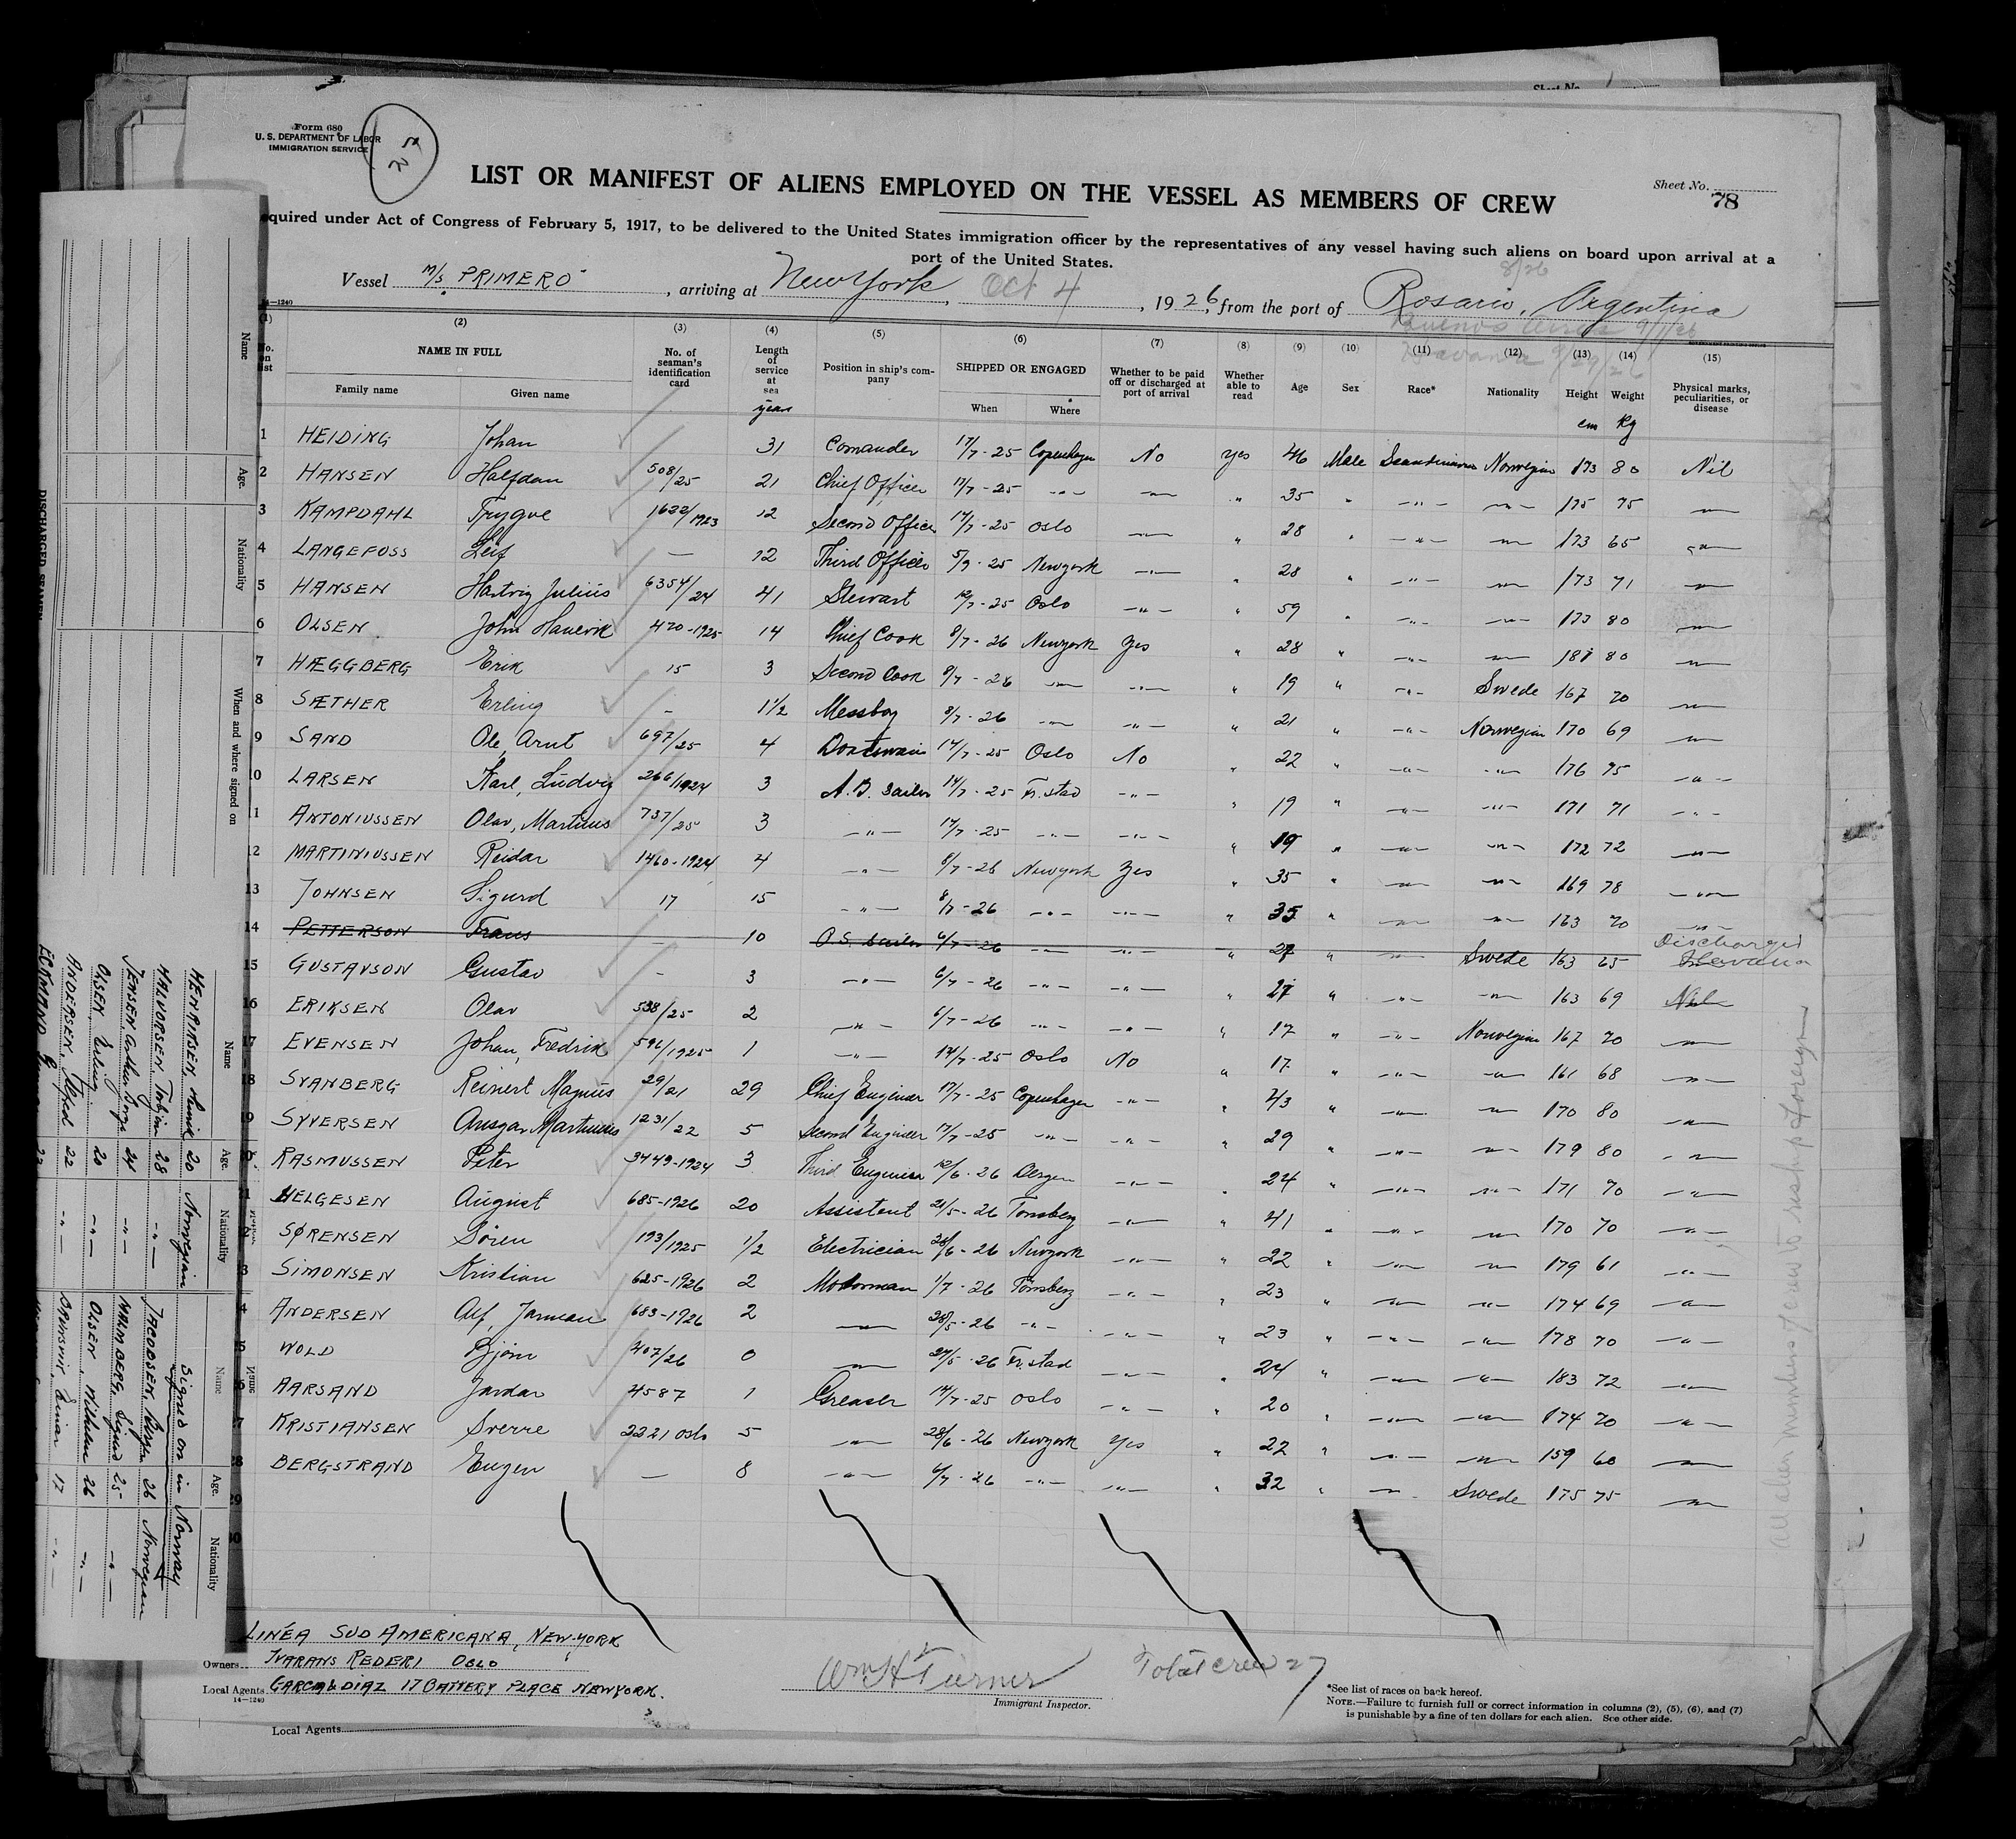 Sheet No.
Form 680
U. S. DEPARTMENT OF LABOR
IMMIGRATION SERVICE
LIST OR MANIFEST OF ALIENS EMPLOYED ON THE VESSEL AS MEMBERS OF CREW
Sheet No.
78
quired under Act of Congress of February 5, 1917, to be delivered to the United States immigration officer by the representatives of any vessel having such aliens on board upon arrival at a
port of the United States.
8/26
Vessel M/S PRIMERO, arriving at New York, Oct 4, 1926, from the port of Rosario, Argentina
Buenos Aires 9/1/26
Havana 9/27/26
14—1240
(1) (2) (3) (4) (5) (6) (7) (8) (9) (10) (11) (12) (13) (14) (15)
No. on list NAME IN FULL No. of seaman's identification card Length of service at sea Position in ship's company SHIPPED OR ENGAGED Whether to be paid off or discharged at port of arrival Whether able to read Age Sex Race* Nationality Height Weight Physical marks, peculiarities, or disease
Family name Given name years When Where cm Kg
1 HEIDING Johan 31 Comander 17/7-25 Copenhagen No Yes 46 Male Scandinavian Norwegian 173 80 Nil
2 HANSEN Halfdan 508/25 21 Chief Officer 17/7-25 -"- -"- " 35 " -"- -"- 175 75 -"-
3 KAMPDAHL Trygve 1622/1923 12 Second Officer 17/7-25 Oslo -"- " 28 " -"- -"- 173 65 -"-
4 LANGEFOSS Leif — 12 Third Officer 5/9-25 Newyork -"- " 28 " -"- -"- 173 71 -"-
5 HANSEN Hartvig Julius 6354/24 41 Stewart 12/7-25 Oslo -"- " 59 " -"- -"- 173 80 -"-
6 OLSEN John 470-1925 14 Chief Cook 8/7-26 Newyork Yes " 28 " -"- -"- 181 80 -"-
7 HÆGGBERG Erik 15 3 Second Cook 8/7-26 -"- -"- " 19 " -"- Swede 167 70 -"-
8 SÆTHER Erling - 1 1/2 Messboy 8/7-26 -"- -"- " 21 " -"- Norwegian 170 69 -"-
9 SAND Ole, Arnt 697/25 4 Boatswain 14/7-25 Oslo No " 22 " -"- -"- 176 75 -"-
10 LARSEN Karl, Ludvig 266/1924 3 A.B. Sailor 14/7-25 Fr.stad -"- " 19 " -"- -"- 171 71 -"-
11 ANTONIUSSEN Olav, Martinus 737/25 3 -"- 14/7-25 -"- -"- " 19 " -"- -"- 172 72 -"-
12 MARTINIUSSEN Reidar 1460-1924 4 -"- 8/7-26 Newyork Yes " 35 " -"- -"- 169 78 -"-
13 JOHNSEN Sigurd 17 15 -"- 8/7-26 -"- -"- " 35 " -"- -"- 163 70 -"-
14 PETTERSON Frans — 10 O.S. Sailor 6/7-26 -"- -"- " 27 " -"- Swede 163 65 Discharged Havana
15 GUSTAVSON Gustav - 3 -"- 6/7-26 -"- -"- " 27 " -"- -"- 163 69 Nil
16 ERIKSEN Olav 538/25 2 -"- 6/7-26 -"- -"- " 17 " -"- Norwegian 167 70 -"-
17 EVENSEN Johan, Fredrik 596/1925 1 -"- 14/7-25 Oslo No " 17 " -"- -"- 161 68 -"-
18 SVANBERG Reinert Magnus 29/21 29 Chief Engineer 17/7-25 Copenhagen -"- " 43 " -"- -"- 170 80 -"-
19 SYVERSEN Ansgar Martinius 1231/22 5 Second Engineer 17/7-25 -"- -"- " 29 " -"- -"- 179 80 -"-
20 RASMUSSEN Peter 3449-1924 3 Third Engineer 12/6-26 Bergen -"- " 24 " -"- -"- 171 70 -"-
1 HELGESEN August 685-1926 20 Assistent 21/5-26 Tönsberg -"- " 41 " -"- -"- 170 70 -"-
2 SØRENSEN Sören 193/1925 1/2 Electrician 28/6-26 Newyork -"- " 22 " -"- -"- 179 61 -"-
3 SIMONSEN Kristian 625-1926 2 Motorman 1/7-26 Tönsberg -"- " 23 " -"- -"- 174 69 -"-
4 ANDERSEN Alf, 683-1926 2 -"- 28/5-26 -"- -"- " 23 " -"- -"- 178 70 -"-
5 WOLD Björn 407/26 0 -"- 27/5-26 Fr.stad -"- " 24 " -"- -"- 183 72 -"-
6 AARSAND Jardar 4587 1 Greaser 14/7-25 Oslo -"- " 20 " -"- -"- 174 70 -"-
7 KRISTIANSEN Sverre 2221 Oslo 5 -"- 28/6-26 Newyork Yes " 22 " -"- -"- 159 60 -"-
28 BERGSTRAND Eugen — 8 -"- 6/7-26 -"- -"- " 32 " -"- Swede 175 75 -"-
29
30
All alien members of crew to reship foreign
LINÉA SUD AMERICANA, NEW-YORK
Owners IVARANS REDERI OSLO
Local Agents GARCIA & DIAZ 17 BATTERY PLACE NEWYORK.
14—1240
Local Agents
Wm H Turner
Immigrant Inspector.
Total crew 27
*See list of races on back hereof.
NOTE.—Failure to furnish full or correct information in columns (2), (5), (6), and (7)
is punishable by a fine of ten dollars for each alien. See other side.
Name Age. Nationality When and where signed on
DISCHARGED SEAMEN
Name Age. Nationality
HENRIKSEN, 20 Norwegian
HALVORSEN, Torbjörn 28 -"-
JENSEN, Arthur 24 -"-
OLSEN, Erling 20 -"-
ANDERSEN, Alfred 22 -"-
ECKMAND
Name Age. Nationality
Signed on in Norway
JACOBSEN, 26 Norwegian
MALMBERG, Sigurd 25 -"-
OLSEN, Wilhelm 26 -"-
Einar 17 -"-